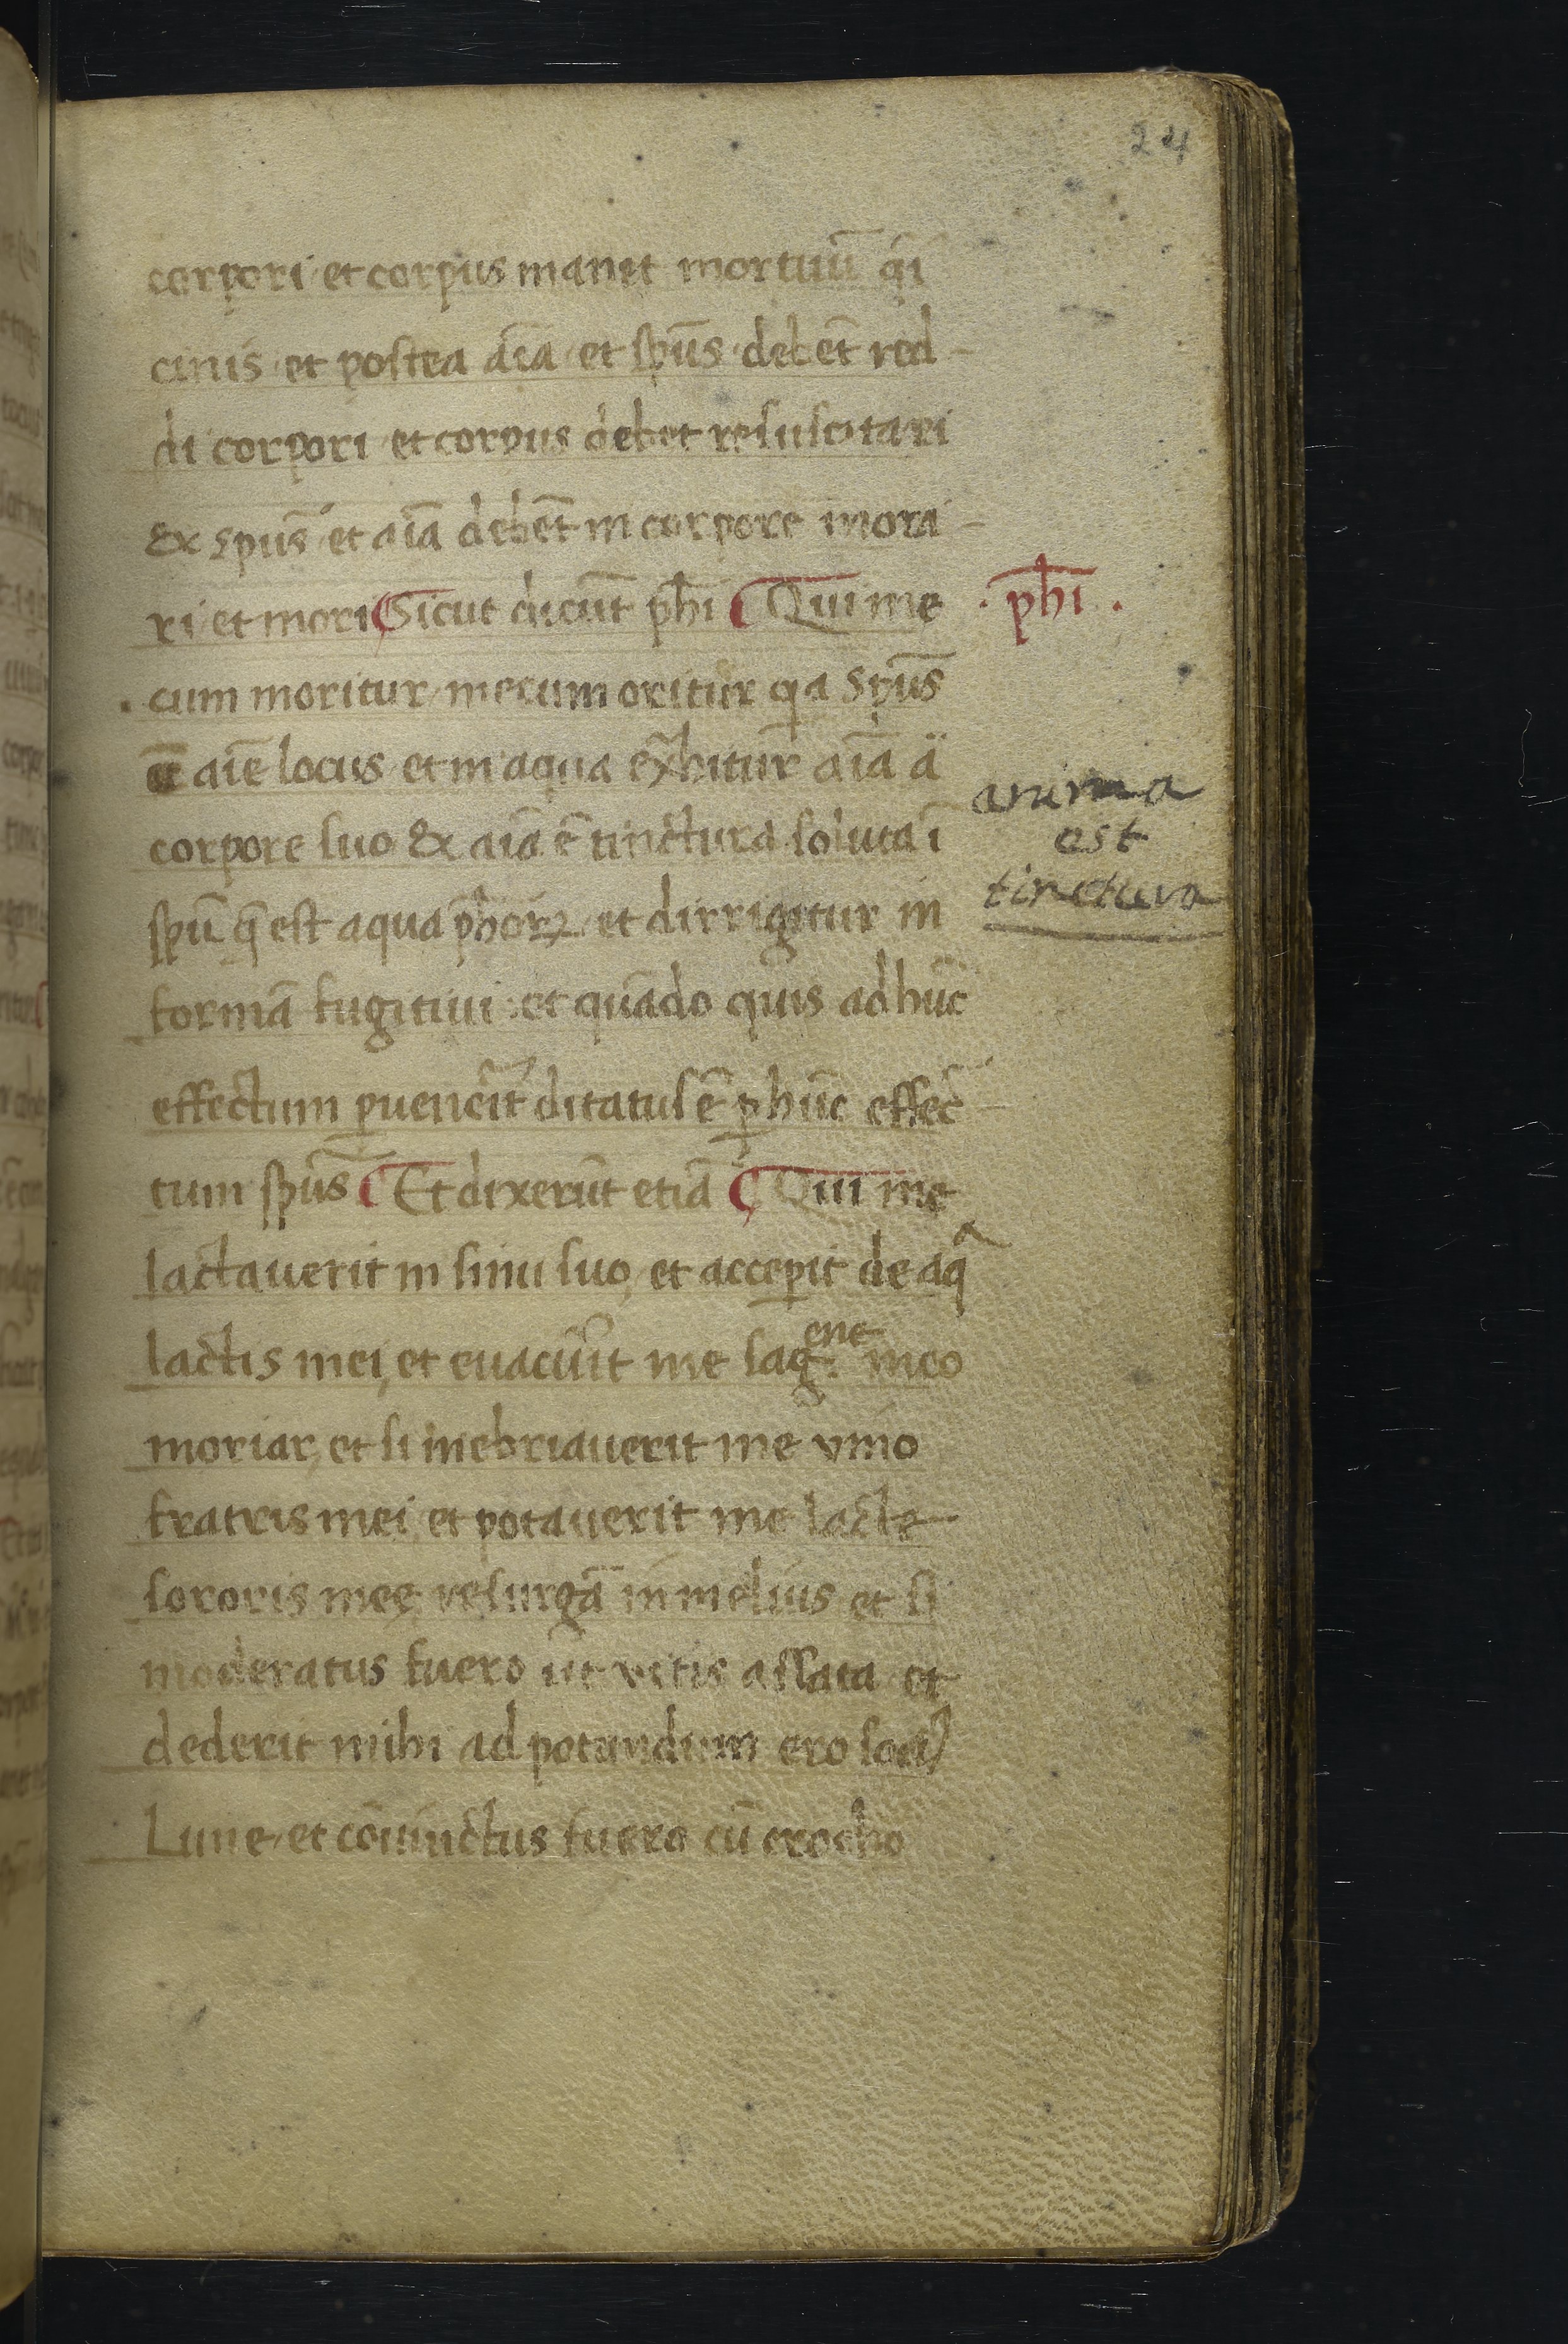 24
corpori et corpus manet mortuū q̄i
cinis et postea aīa et spūs debēt red-
di corpori et corpus debet resuscitari
Ex spūs et aīa debēt in corpore mora-
ri et mori Sicut dicūt phī Qui me
. phī .
cum moritur mecum oritur q̄a spūs
aīe locus et in aqua aīa ā
anima
corpore suo Ex aīa ē tinctura soluta ī
est
spū q̄ est aqua phorꝝ et dirrigitur in
tinctura
formā fugitiui et quādo quis ad hūc
effectum ꝑuenerit ditatus ē ꝑ hūc effec-
tum spūs Et dixerūt etiā Qui me
lactauerit in sinu suo, et acceperit de aqᵃ
lactis mei, et euacuīt me sagene meo
moriar, et si inebriauerit me vino
fratris mei et potauerit me lacte
sororis meę resurgā in melius et si
moderatus fuero ut vitis assata et
dederit mihi ad potandum ero
Lune et cōiunctus fuero cū crocho